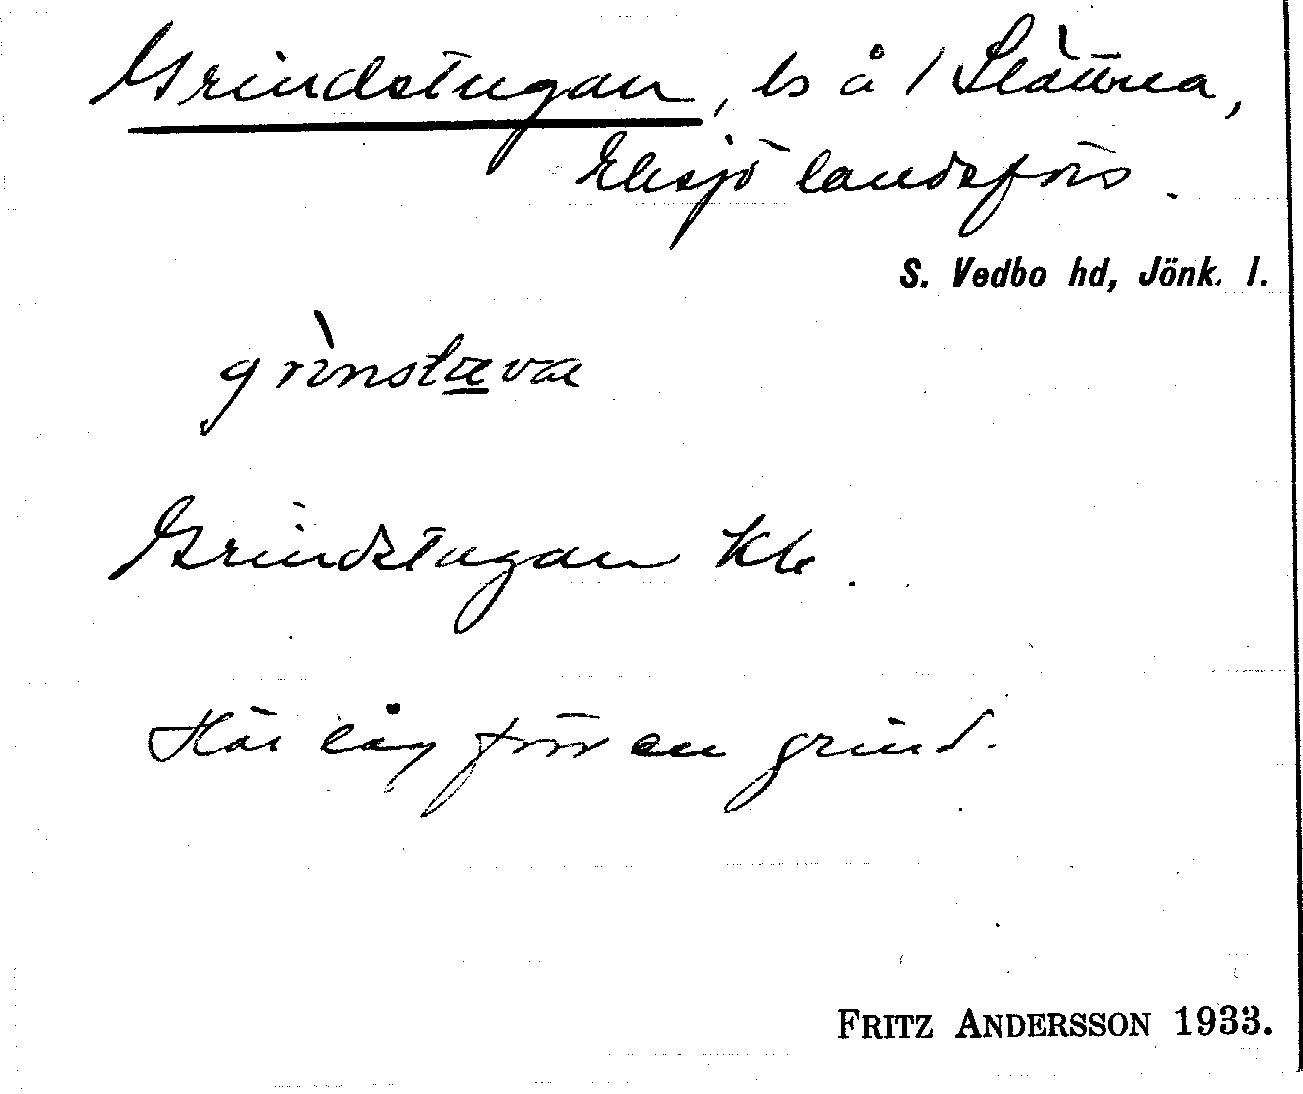 Grindstugan, ls å 1 Slättna,
Eksjö landsförs.
S. Vedbo hd, Jönk. l.
grìnstæva
Grindstugan Kb.
Här låg förr en grind.
FRITZ ANDERSSON 1933.